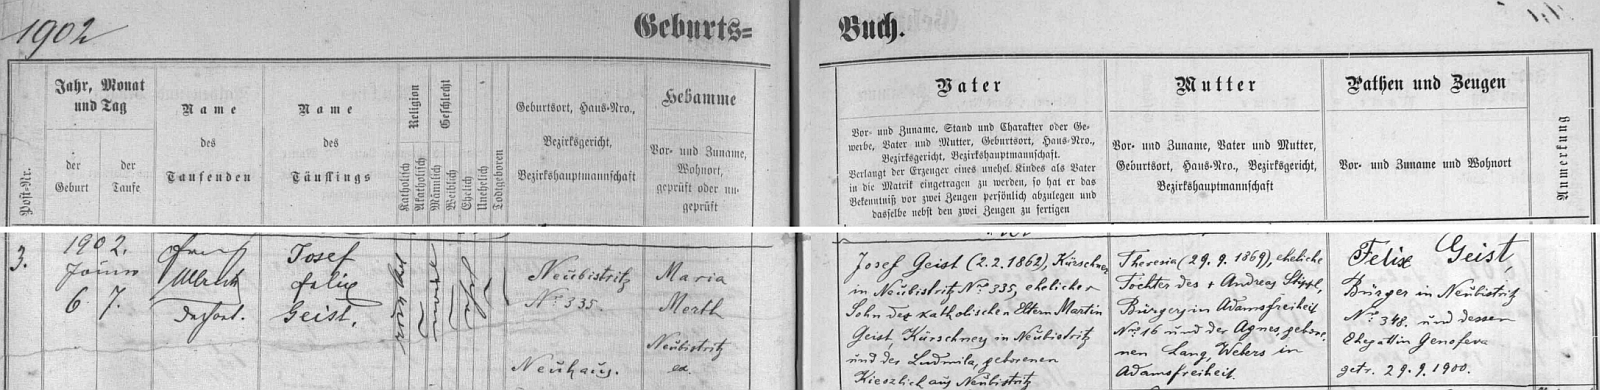 1902
Geburts=
Buch.
Post-Nr.
Jahr, Monat
und Tag
der
Geburt
der
Taufe
Name
des
Taufenden
Name
des
Täuflings
Religion
Katholisch
Akatholisch
Geschlecht
Männlich
Weiblich
Ehelich
Unehelich
Todtgeboren
Geburtsort, Haus-Nro.,
Bezirksgericht,
Bezirkshauptmannschaft
Hebamme
Vor- und Zuname,
Wohnort,
geprüft oder un-
geprüft
Vater
Vor- und Zuname, Stand und Charakter oder Ge-
werbe, Vater und Mutter, Geburtsort, Haus-Nro.,
Bezirksgericht, Bezirkshauptmannschaft.
Verlangt der Erzeuger eines unehel. Kindes als Vater
in die Matrik eingetragen zu werden, so hat er das
Bekenntniß vor zwei Zeugen persönlich abzulegen und
dasselbe nebst den zwei Zeugen zu fertigen
Mutter
Vor- und Zuname, Vater und Mutter,
Geburtsort, Haus-Nro., Bezirksgericht,
Bezirkshauptmannschaft
Pathen und Zeugen
Vor- und Zuname und Wohnort
Anmerkung
3.
1902.
6. 7.
Josef
Felix
Geist.
Neubistritz
No 335.
Neuhaus.
Maria
Merth
Neubistritz
ex.
Josef Geist (2.2.1862), Kürschner
in Neubistritz No 335, ehelicher
Sohn der katholischen Eltern Martin
Geist, Kürschner in Neubistritz
und der Ludmila, geborenen
Kieszlich aus Neubistritz
Theresia (29. 9. 1869), eheliche
Tochter des + Andreas
Bürgers in Adamsfreiheit
No 16 und der Agnes, gebore-
nen Lang, Webers in
Adamsfreiheit.
Felix Geist,
Bürger in Neubistritz
No 348. und dessen
Ehegattin Genofeva
getr. 29. 9. 1900.